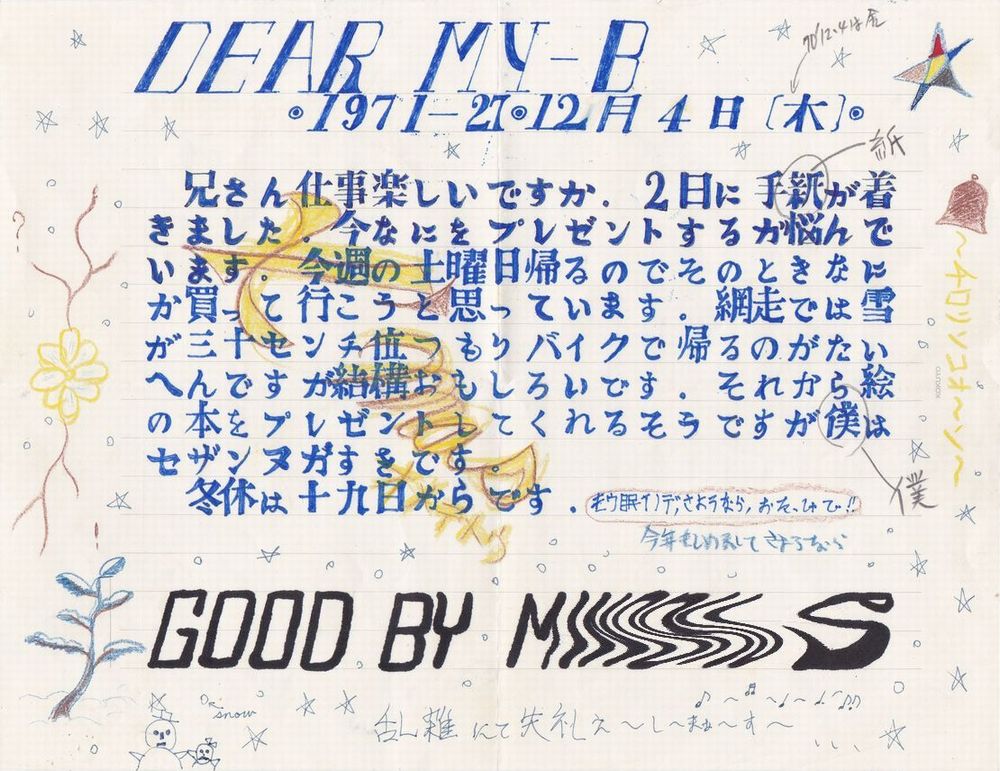 DEAR MY-B
1971-27 12月4日〔木〕
紙
兄さん仕事楽しいですか．2日に手紙が着
きました．今なにをプレゼントするか悩んで
います．今週の土曜日帰るのでそのときなに
か買って行こうと思っています．網走では雪
が三十センチ位つもりバイクで帰るのがたい
へんですが結構おもしろいです．それから絵
の本をプレゼントしてくれるそうですが僕は
セザンヌガすきです．
僕
冬休は十九日からです．
モウ眠イノデ,さようなら,
GOOD BY MISS S
snow
乱雑にて失礼